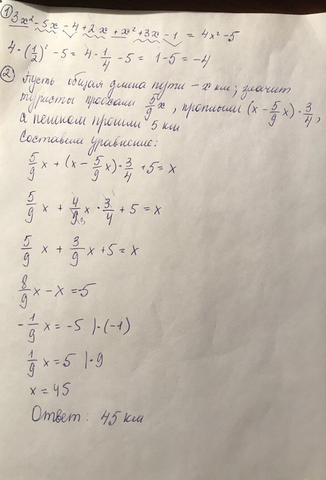 ① 3x² - 5x - 4 + 2x + x² + 3x - 1 = 4x² - 5
4 · (1/2)² - 5 = 4 · 1/4 - 5 = 1 - 5 = -4
② Пусть общая длина пути - x км; значит
туристы проехали 5/9 x, проплыли (x - 5/9 x) · 3/4,
а пешком прошли 5 км
Составим уравнение:
5/9 x + (x - 5/9 x) · 3/4 + 5 = x
5/9 x + 4/9 x · 3/4 + 5 = x
5/9 x + 3/9 x + 5 = x
8/9 x - x = -5
- 1/9 x = -5 | · (-1)
1/9 x = 5 | · 9
x = 45
Ответ: 45 км